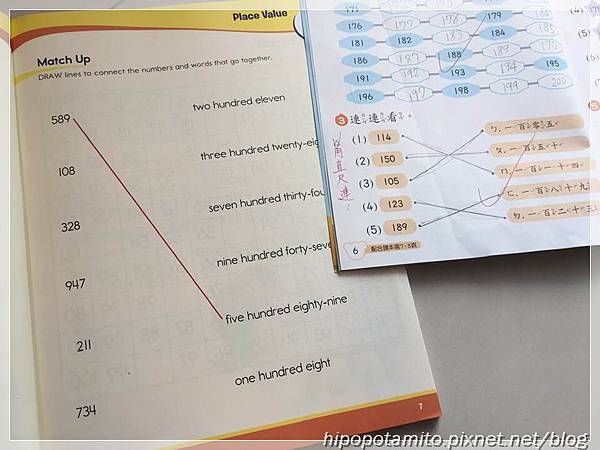 Place Value
Match Up
DRAW lines to connect the numbers and words that go together.
589
two hundred eleven
three hundred twenty-eig
108
seven hundred thirty-fou
328
nine hundred forty-seve
947
five hundred eighty-nine
211
one hundred eight
734
7
171 177 178 179
176 182 183 184
181 187 188 189
186 192 193 194 195
191 197 198 199 200
196
3 連連看。
用直尺連!
(1) 114
ㄅ. 一百零五
(2) 150
ㄆ. 一百五十
(3) 105
ㄇ. 一百一十四
(4) 123
ㄈ. 一百八十九
(5) 189
ㄉ. 一百二十三
6 配合課本第7、8頁
hipopotamito.pixnet.net/blog